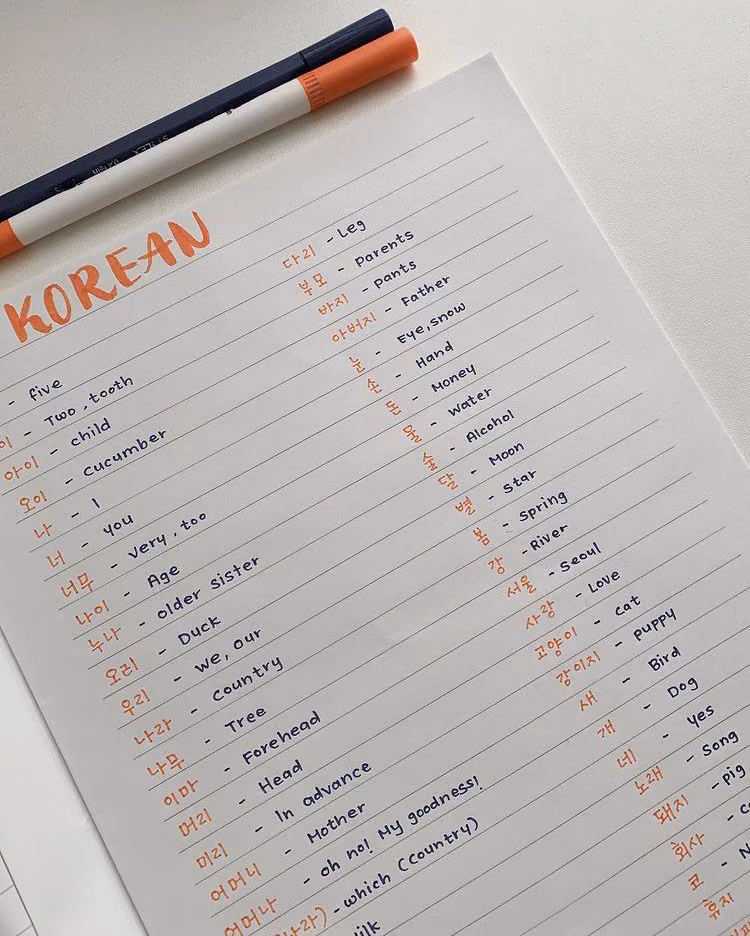 KOREAN
- five
이 - Two, tooth
아이 - child
오이 - cucumber
나 - I
너 - you
너무 - very, too
나이 - Age
누나 - older sister
오리 - Duck
우리 - we, our
나라 - country
나무 - Tree
이마 - Forehead
머리 - Head
미리 - In advance
어머니 - Mother
어머나 - oh no! My goodness!
나라) - which (country)
다리 - Leg
부모 - Parents
바지 - pants
아버지 - Father
눈 - Eye, snow
손 - Hand
돈 - Money
물 - water
술 - Alcohol
달 - Moon
별 - star
봄 - spring
강 - River
서울 - Seoul
사랑 - Love
고양이 - cat
강이지 - puppy
새 - Bird
개 - Dog
네 - yes
노래 - song
돼지 - pig
회사 -
코 - N
휴지